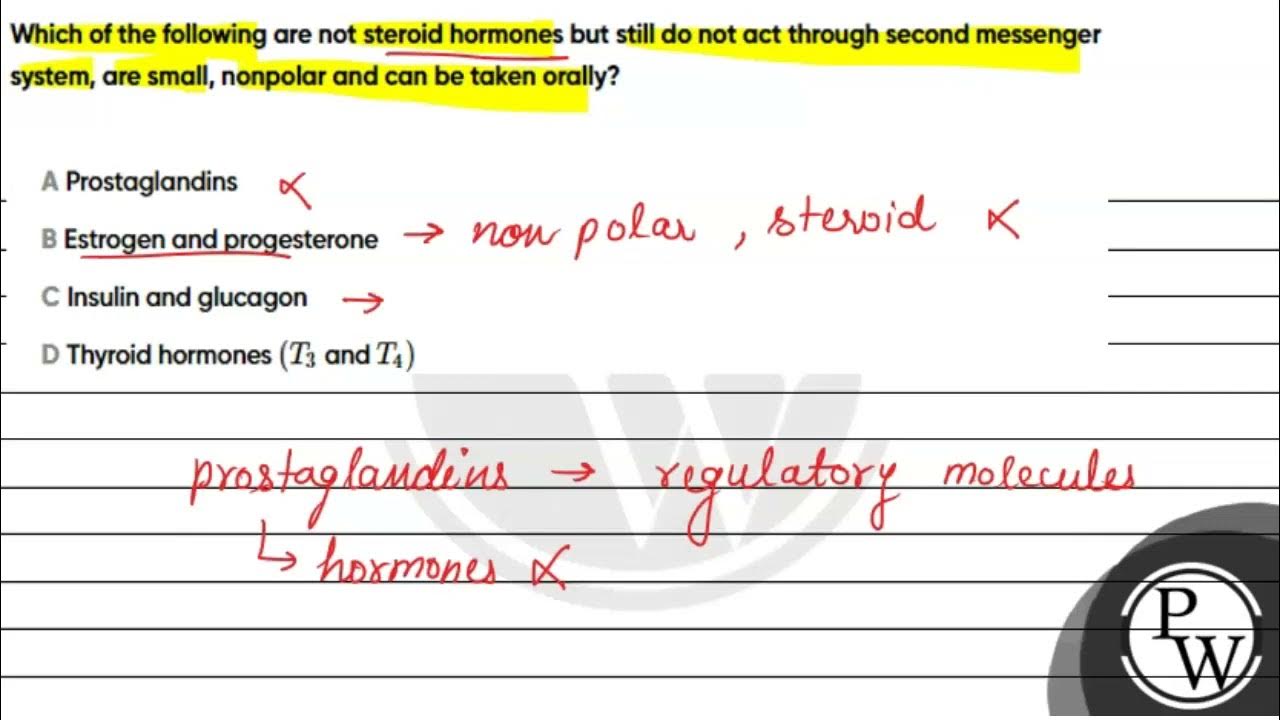 Which of the following are not steroid hormones but still do not act through second messenger
system, are small, nonpolar and can be taken orally?
A Prostaglandins
B Estrogen and progesterone → non polar, steroid
C Insulin and glucagon →
D Thyroid hormones (T₃ and T₄)
prostaglandins → regulatory molecules
↳ hormones
P
W